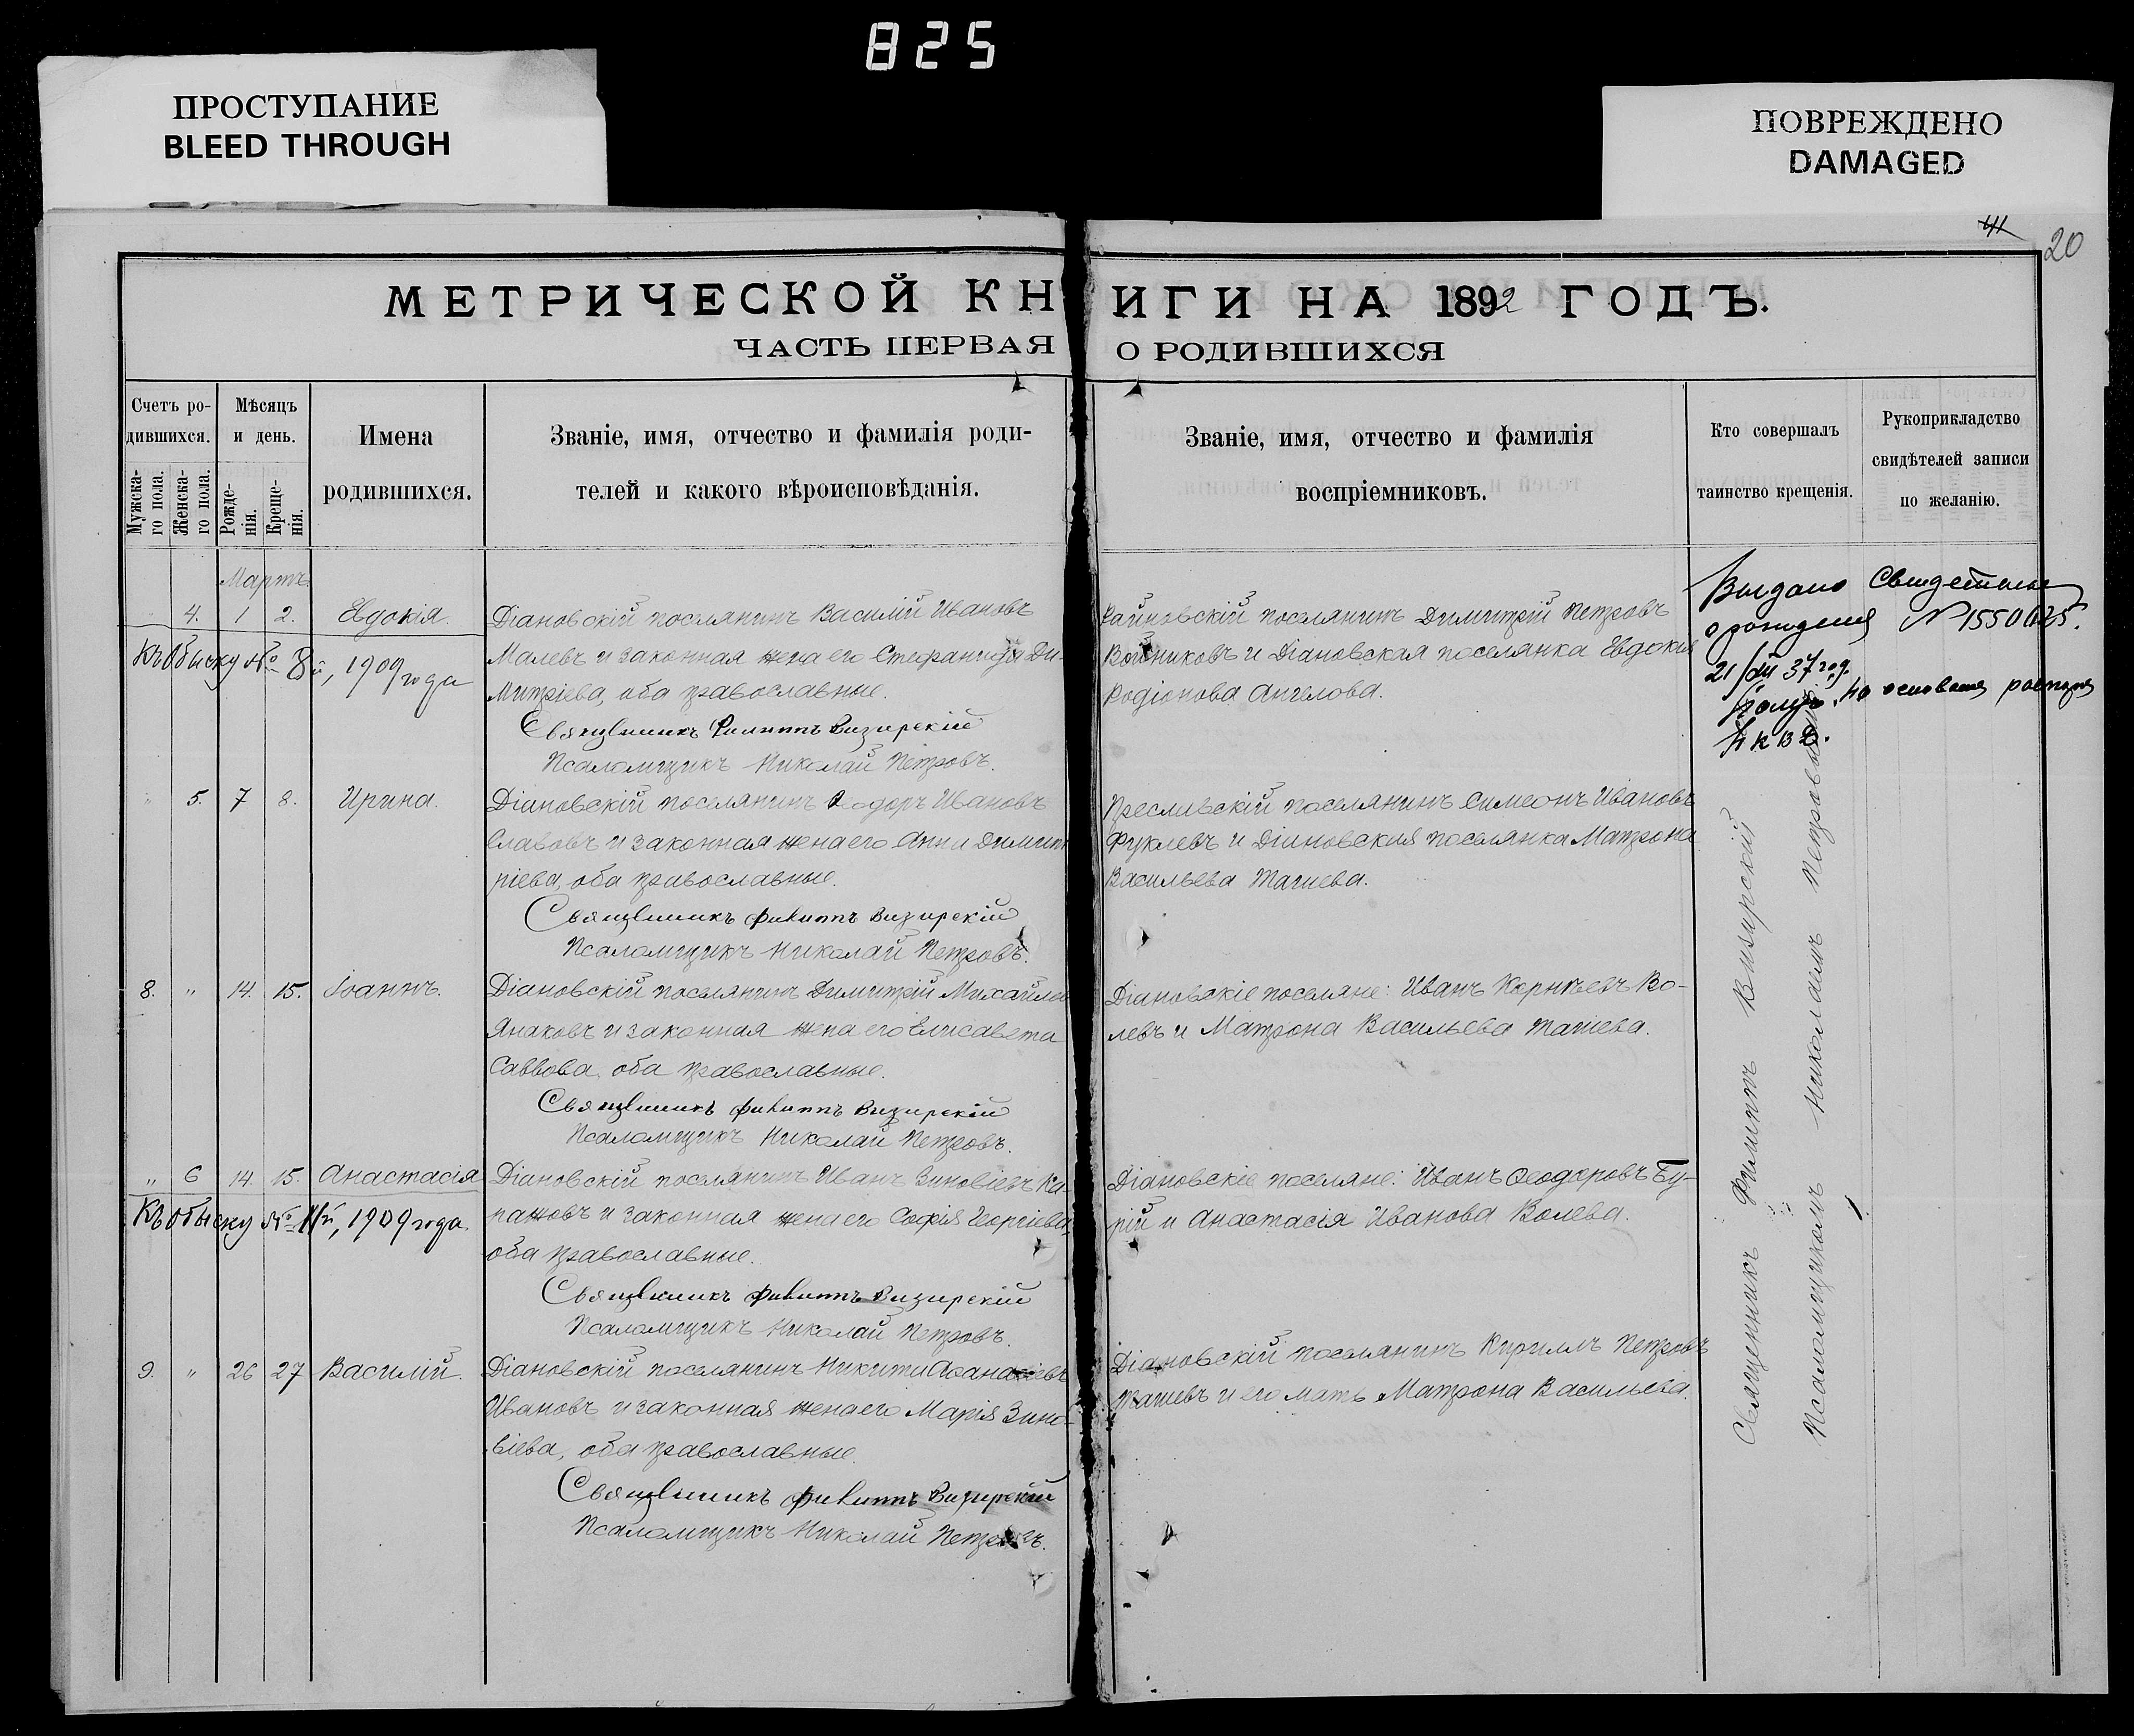 825
ПРОСТУПАНИЕ
BLEED THROUGH
ПОВРЕЖДЕНО
DAMAGED
41
20
МЕТРИЧЕСКОЙ КНИГИ НА 1892 ГОДЪ.
ЧАСТЬ ПЕРВАЯ О РОДИВШИХСЯ
Счетъ ро-
дившихся.
Мужска-
го пола.
Женска-
го пола.
Мѣсяцъ
и день.
Рожде-
нія.
Креще-
нія.
Имена
родившихся.
Званіе, имя, отчество и фамилія роди-
телей и какого вѣроисповѣданія.
Званіе, имя, отчество и фамилія
воспріемниковъ.
Кто совершалъ
таинство крещенія.
Рукоприкладство
свидѣтелей записи
по желанію.
Мартъ
4. 1 2. Евдокія.
Къ обыску № 8й, 1909 года
Діановскій поселянинъ Василій Ивановъ
Малевъ и законная жена его Ди-
митріева, оба православные.
Священникъ Филиппъ Визирскій
Псаломщикъ Николай Петровъ.
поселянинъ Димитрій Петровъ
и Діановская поселянка Евдокія
Родіонова Ангелова.
Выдано Свидетельс
о рождения № 1550625.
21/ 37 год.
на основания
НКВД.
" 5. 7 8. Ирина.
Діановскій поселянинъ Ѳеодоръ Ивановъ
Славовъ и законная жена его Анна Димит
ріева, оба православные.
Священникъ Филиппъ Визирскій
Псаломщикъ Николай Петровъ.
Преславскій поселянинъ Симеонъ Ивановъ
Фуклевъ и Діановская поселянка Матрона
Васильева Ташева.
8. " 14. 15. Іоаннъ.
Діановскій поселянинъ Димитрій Михайлов
Янаковъ и законная жена его Елисавета
Саввова, оба православные.
Священникъ Филиппъ Визирскій
Псаломщикъ Николай Петровъ.
Діановскіе поселяне: Иванъ Во-
левъ и Матрона Васильева Ташева.
" 6 14. 15. Анастасія
Къ обыску № 11й, 1909 года.
Діановскій поселянинъ Иванъ Зиновіевъ Ка-
и законная жена его Софія Георгіева,
оба православные.
Священникъ Филиппъ Визирскій
Псаломщикъ Николай Петровъ.
Діановскіе поселяне: Иванъ Ѳеодоровъ Бу-
рій и Анастасія Иванова Волева.
9. " 26 27 Василій.
Діановскій поселянинъ Никита Аѳанасіевъ
Ивановъ и законная жена его Марія Зино-
віева, оба православные.
Священникъ Филиппъ Визирскій
Псаломщикъ Николай Петровъ.
Діановскій поселянинъ Кириллъ Петровъ
Ташевъ и его мать Матрона Васильева.
Священникъ Филиппъ Визирскій
Псаломщикомъ Николаемъ Петровымъ